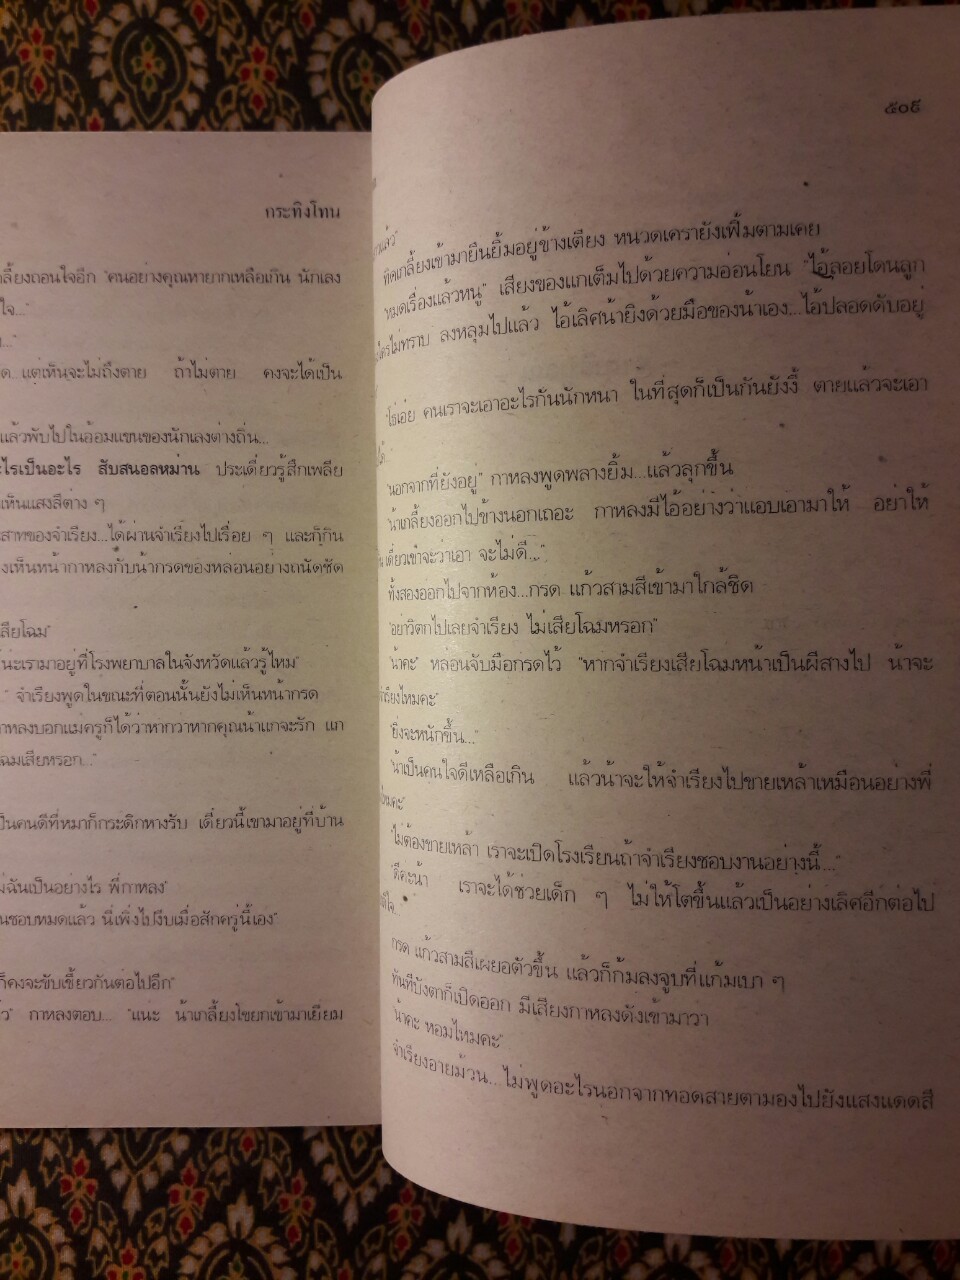 กระทิงโทน
กลี้ยงถอนใจอีก "คนอย่างคุณหายากเหลือเกิน นักเลง
ใจ..."
แต่เห็นจะไม่ถึงตาย ถ้าไม่ตาย คงจะได้เป็น
แล้วพับไปในอ้อมแขนของนักเลงต่างถิ่น...
ะไรเป็นอะไร สับสนอลหม่าน ประเดี๋ยวรู้สึกเพลีย
เห็นแสงสีต่าง ๆ
สาทของจำเรียง...ได้ผ่านจำเรียงไปเรื่อย ๆ และก็กิน
งเห็นหน้ากาหลงกับน้ากรดของหล่อนอย่างถนัดชัด
สียโฉม"
น่ะเรามาอยู่ที่โรงพยาบาลในจังหวัดแล้วรู้ไหม"
" จำเรียงพูดในขณะที่ตอนนั้นยังไม่เห็นหน้ากรด
าหลงบอกแม่ครูก็ได้ว่าหากว่าหากคุณน้าแกจะรัก แก
ฉมเสียหรอก..."
ป็นคนดีที่หมาก็กระดิกหางรับ เดี๋ยวนี้เขามาอยู่ที่บ้าน
ม่ฉันเป็นอย่างไร พี่กาหลง"
นชอบหมดแล้ว นี่เพิ่งไปงีบเมื่อสักครู่นี้เอง"
ก็คงจะขับเขี้ยวกันต่อไปอีก"
ว" กาหลงตอบ... "แน่ะ น้าเกลี้ยงโขยกเข้ามาเยี่ยม
๕๐๙
แล้ว"
ทิดเกลี้ยงเข้ามายืนยิ้มอยู่ข้างเตียง หนวดเครายังเฟิ้มตามเคย
"หมดเรื่องแล้วหนู" เสียงของแกเต็มไปด้วยความอ่อนโยน "ไอ้ลอยโดนลูก
ใครไม่ทราบ ลงหลุมไปแล้ว ไอ้เลิศน้ายิงด้วยมือของน้าเอง...ไอ้ปลอดดับอยู่
"โธ่เอ๋ย คนเราจะเอาอะไรกันนักหนา ในที่สุดก็เป็นกันยังงี้ ตายแล้วจะเอา
"นอกจากที่ยังอยู่" กาหลงพูดพลางยิ้ม...แล้วลุกขึ้น
"น้าเกลี้ยงออกไปข้างนอกเถอะ กาหลงมีไอ้อย่างว่าแอบเอามาให้ อย่าให้
เดี๋ยวเขาจะว่าเอา จะไม่ดี..."
ทั้งสองออกไปจากห้อง...กรด แก้วสามสีเข้ามาใกล้ชิด
"อย่าวิตกไปเลยจำเรียง ไม่เสียโฉมหรอก"
"น้าคะ" หล่อนจับมือกรดไว้ "หากจำเรียงเสียโฉมหน้าเป็นผีสางไป น้าจะ
เรียงไหมคะ"
"ยิ่งจะหนักขึ้น..."
"น้าเป็นคนใจดีเหลือเกิน แล้วน้าจะให้จำเรียงไปขายเหล้าเหมือนอย่างพี่
ไหมคะ"
"ไม่ต้องขายเหล้า เราจะเปิดโรงเรียนถ้าจำเรียงชอบงานอย่างนี้..."
"ดีค่ะน้า เราจะได้ช่วยเด็ก ๆ ไม่ให้โตขึ้นแล้วเป็นอย่างเลิศอีกต่อไป
กรด แก้วสามสีเผยอตัวขึ้น แล้วก็ก้มลงจูบที่แก้มเบา ๆ
ทันทีบังตาก็เปิดออก มีเสียงกาหลงดังเข้ามาว่า
"น้าคะ หอมไหมคะ"
จำเรียงอายม้วน...ไม่พูดอะไรนอกจากทอดสายตามองไปยังแสงแดดสี